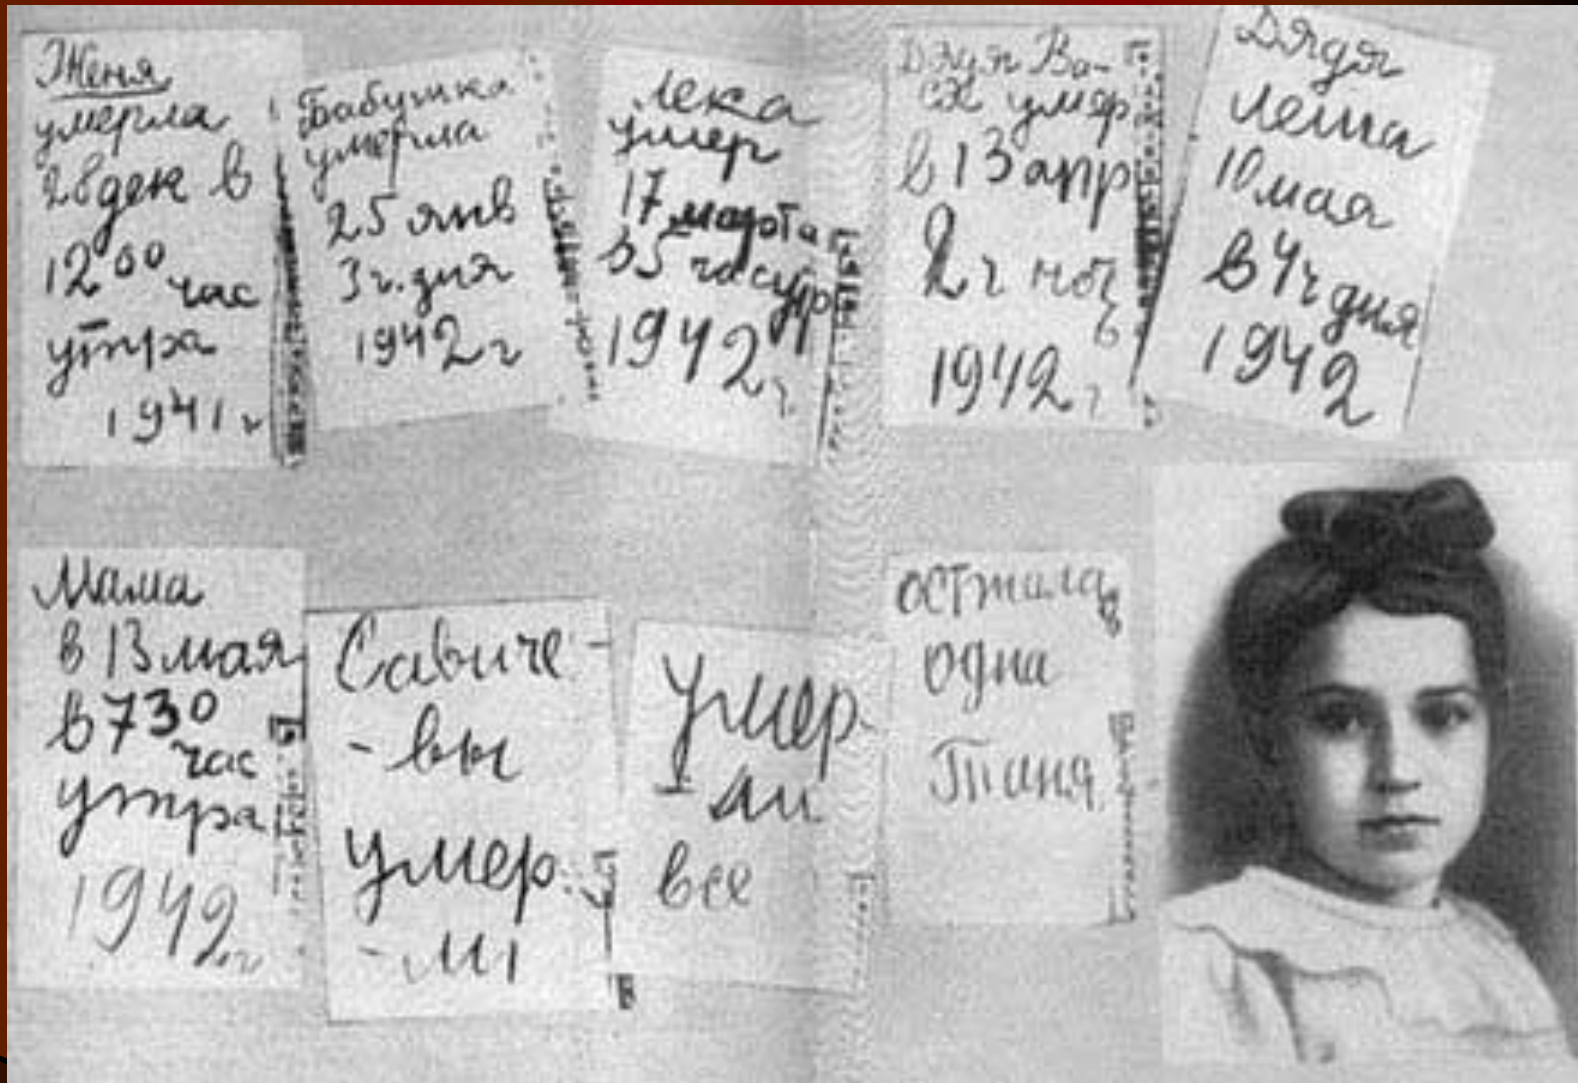 Женя
умерла
28 дек в
12 00 час
утра
1941 г
Бабушка
умерла
25 янв
3 ч. дня
1942 г
Лека
умер
17 марта
в 5 час утр
1942 г.
Дядя Ва-
ся умер
в 13 апр
2 ч ноч
ь
1942 г
Дядя
Леша
10 мая
в 4 ч дня
1942
Мама
в 13 мая
в 7 30
час
утра
1942 г
Савиче-
- вы
умер
- ли
Умер
- ли
все
осталась
одна
Таня